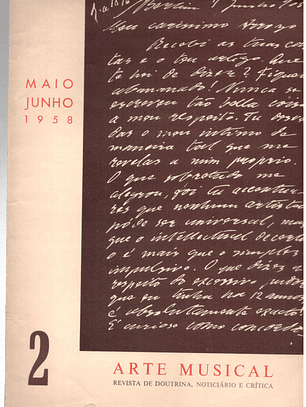 MAIO
JUNHO
1958
Meu carissimo
Recebi as tuas car
tas e o teu artigo. Que
te hei de dizer? Fiquei
Nunca se
escreveu tão bella coisa
a meu respeito. Tu
o meu intimo de
maneira tal que me
revelas a mim proprio
O que sobretudo me
alegrou, foi tu accentua
res que nenhum artista
póde ser universal, mas
que o intellectual
é o mais que o simples
impulsivo. O que dizes a
respeito do
que eu tinha na 12 annos
é absolutamente exacto!
É curioso como concorda
2
ARTE MUSICAL
REVISTA DE DOUTRINA, NOTICIÁRIO E CRÍTICA